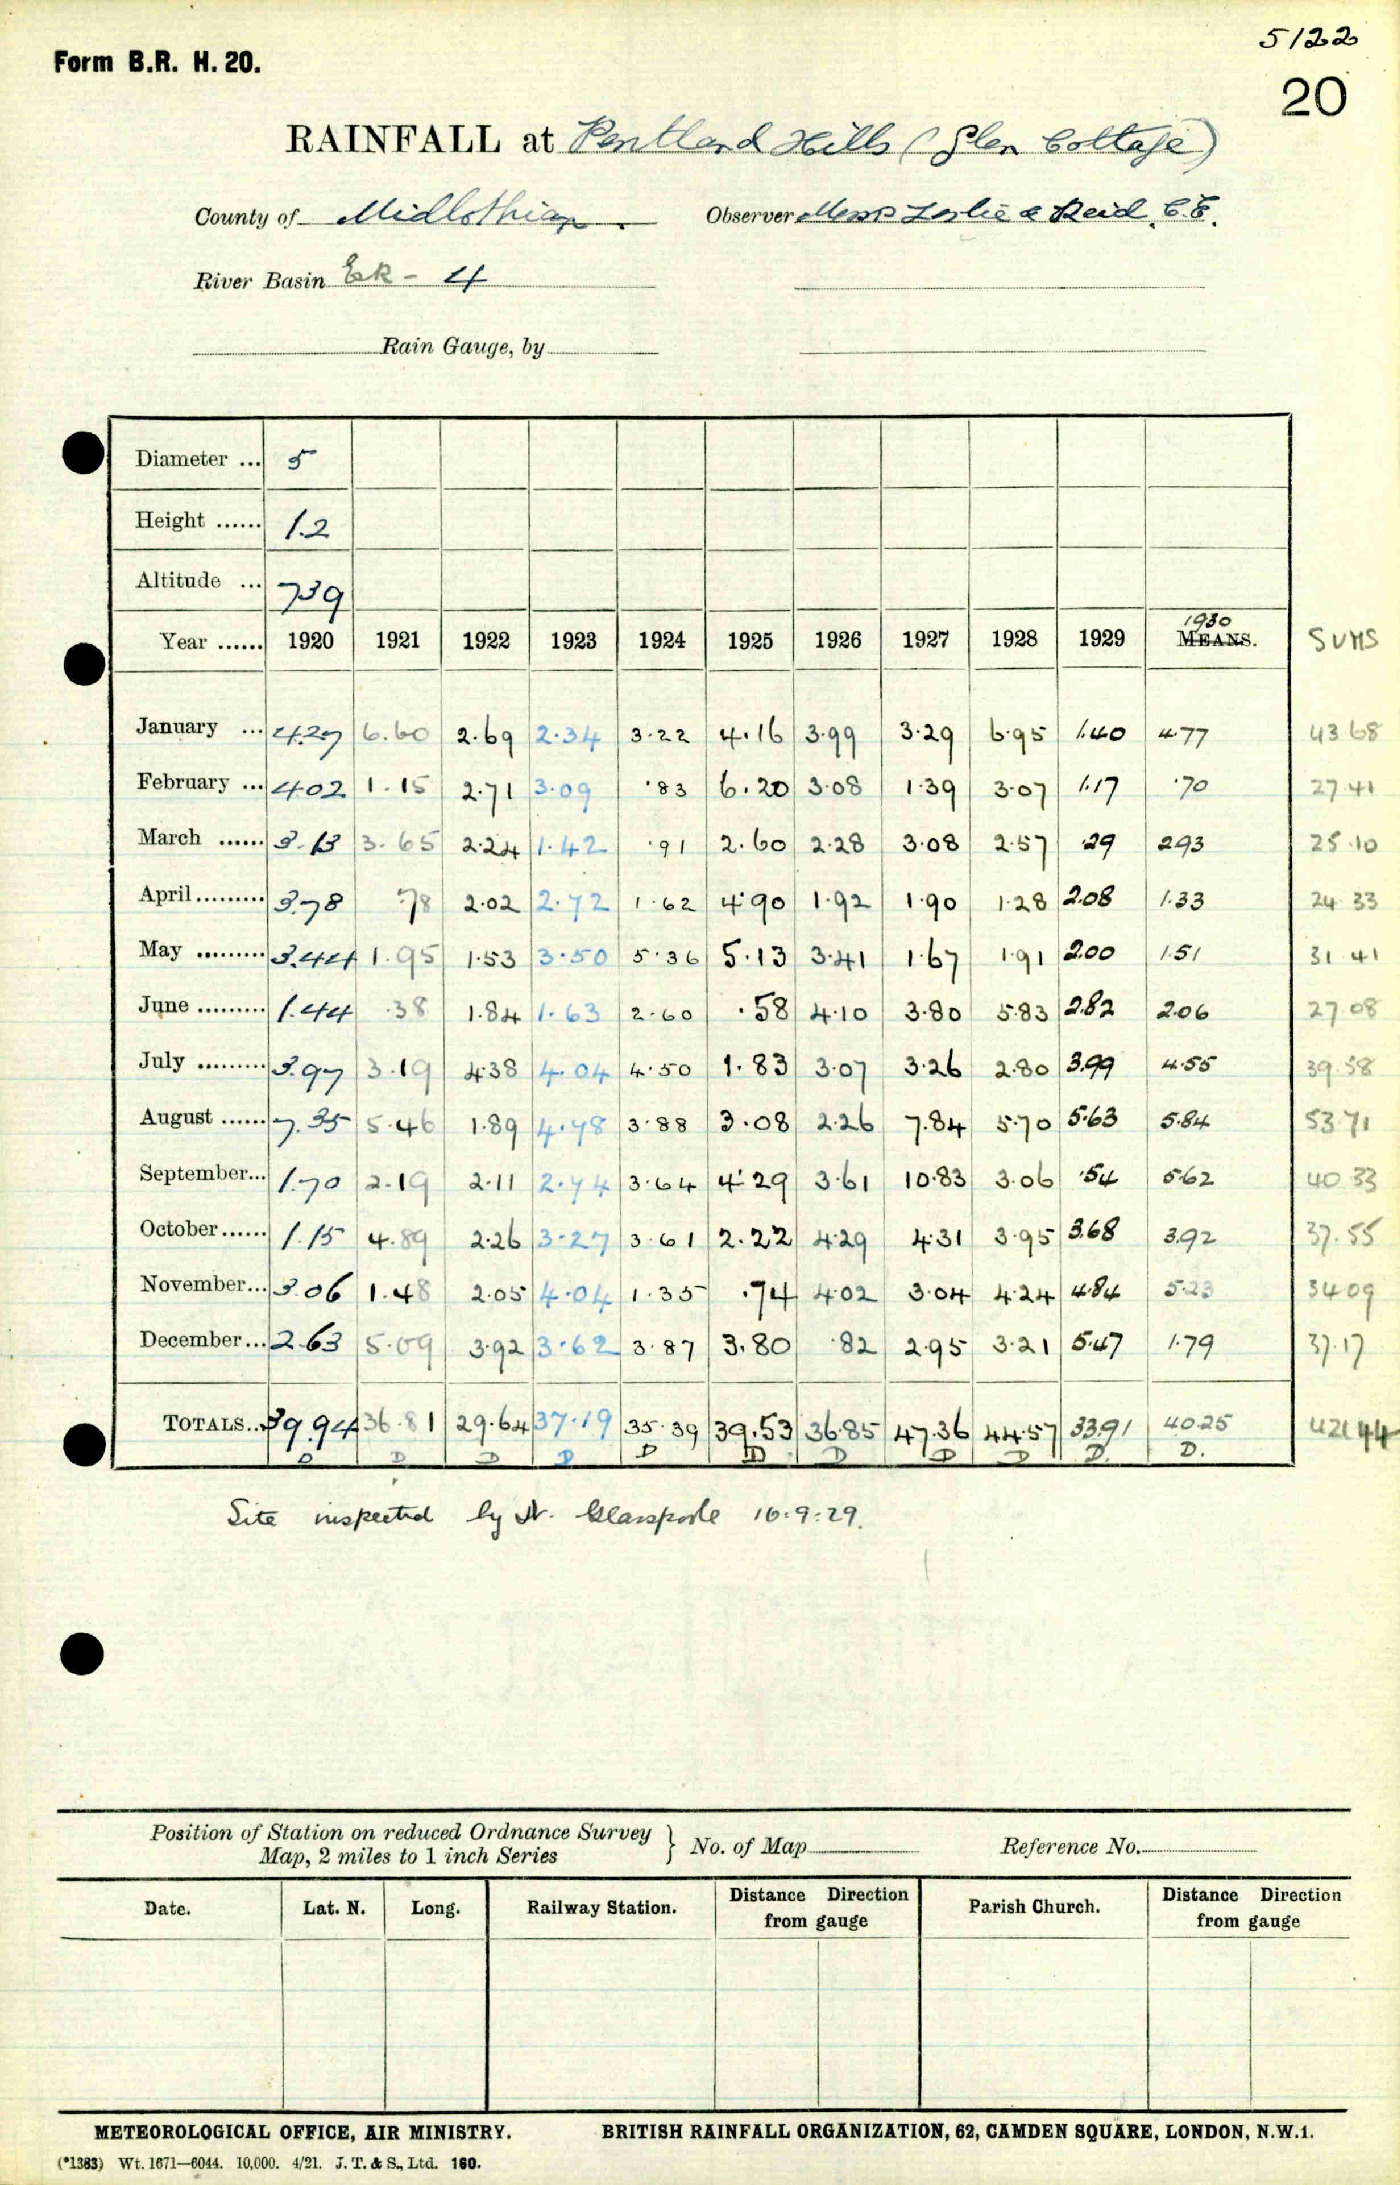 5122
Form B.R. H. 20.
20
RAINFALL at Pentland Hills (Glen Cottage)
County of Midlothian. Observer Messrs Leslie & Reid, C.E.
River Basin Esk - 4
Rain Gauge, by
Diameter ... 5
Height ...... 1.2
Altitude ... 739
1930
Year ...... 1920 1921 1922 1923 1924 1925 1926 1927 1928 1929 MEANS. SUMS
January ... 4.27 6.60 2.69 2.34 3.22 4.16 3.99 3.29 6.95 1.40 4.77 43 68
February ... 4.02 1.15 2.71 3.09 .83 6.20 3.08 1.39 3.07 1.17 .70 27.41
March ...... 3.13 3.65 2.24 1.42 .91 2.60 2.28 3.08 2.57 .29 2.93 25.10
April......... 3.78 .78 2.02 2.72 1.62 4.90 1.92 1.90 1.28 2.08 1.33 24.33
May ......... 3.44 1.95 1.53 3.50 5.36 5.13 3.41 1.67 1.91 2.00 1.51 31.41
June ......... 1.44 .38 1.84 1.63 2.60 .58 4.10 3.80 5.83 2.82 2.06 27.08
July ......... 3.97 3.19 4.38 4.04 4.50 1.83 3.07 3.26 2.80 3.99 4.55 39.58
August ...... 7.35 5.46 1.89 4.78 3.88 3.08 2.26 7.84 5.70 5.63 5.84 53.71
September... 1.70 2.19 2.11 2.74 3.64 4.29 3.61 10.83 3.06 .54 5.62 40 33
October...... 1.15 4.89 2.26 3.27 3.61 2.22 4.29 4.31 3.95 3.68 3.92 37.55
November... 3.06 1.48 2.05 4.04 1.35 .74 4.02 3.04 4.24 4.84 5.23 34 09
December... 2.63 5.09 3.92 3.62 3.87 3.80 .82 2.95 3.21 5.47 1.79 37.17
TOTALS... 39.94 36.81 29.64 37.19 35.39 39.53 36.85 47.36 44.57 33.91 40.25 421 44
D D D D D D D D D D. D.
Site inspected by Dr. Glasspoole 16.9.29.
Position of Station on reduced Ordnance Survey
Map, 2 miles to 1 inch Series } No. of Map Reference No.
Date. Lat. N. Long. Railway Station. Distance Direction from gauge Parish Church. Distance Direction from gauge
METEOROLOGICAL OFFICE, AIR MINISTRY. BRITISH RAINFALL ORGANIZATION, 62, CAMDEN SQUARE, LONDON, N.W.1.
(*1383) Wt. 1671—6044. 10,000. 4/21. J. T. & S., Ltd. 160.